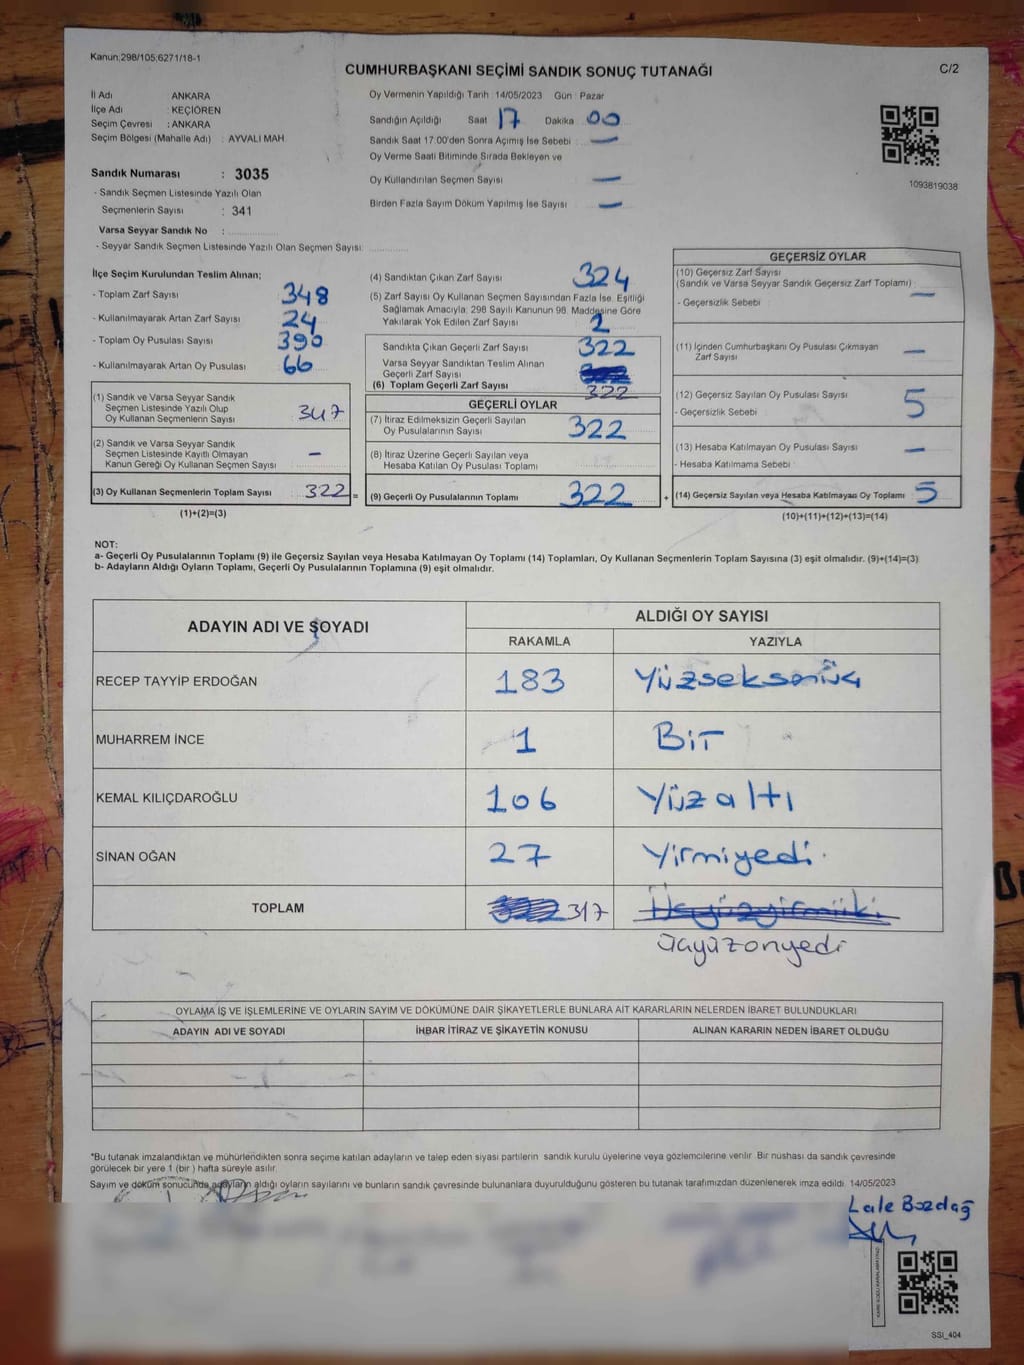 Kanun;298/105;6271/18-1
CUMHURBAŞKANI SEÇİMİ SANDIK SONUÇ TUTANAĞI
C/2
İl Adı ANKARA
İlçe Adı : KEÇİÖREN
Seçim Çevresi : ANKARA
Seçim Bölgesi (Mahalle Adı) : AYVALI MAH.
Sandık Numarası : 3035
- Sandık Seçmen Listesinde Yazılı Olan
Seçmenlerin Sayısı : 341
Varsa Seyyar Sandık No :
- Seyyar Sandık Seçmen Listesinde Yazılı Olan Seçmen Sayısı:
Oy Vermenin Yapıldığı Tarih : 14/05/2023 Gün : Pazar
Sandığın Açıldığı Saat 17 Dakika 00
Sandık Saat 17.00'den Sonra Açılmış İse Sebebi : —
Oy Verme Saati Bitiminde Sırada Bekleyen ve
Oy Kullandırılan Seçmen Sayısı : —
Birden Fazla Sayım Döküm Yapılmış İse Sayısı : —
1093819038
İlçe Seçim Kurulundan Teslim Alınan;
- Toplam Zarf Sayısı : 348
- Kullanılmayarak Artan Zarf Sayısı : 24
- Toplam Oy Pusulası Sayısı : 390
- Kullanılmayarak Artan Oy Pusulası : 66
(1) Sandık ve Varsa Seyyar Sandık
Seçmen Listesinde Yazılı Olup
Oy Kullanan Seçmenlerin Sayısı : 347
(2) Sandık ve Varsa Seyyar Sandık
Seçmen Listesinde Kayıtlı Olmayan
Kanun Gereği Oy Kullanan Seçmen Sayısı : –
(3) Oy Kullanan Seçmenlerin Toplam Sayısı : 322 =
(1)+(2)=(3)
(4) Sandıktan Çıkan Zarf Sayısı : 324
(5) Zarf Sayısı Oy Kullanan Seçmen Sayısından Fazla İse, Eşitliği
Sağlamak Amacıyla; 298 Sayılı Kanunun 98. Maddesine Göre
Yakılarak Yok Edilen Zarf Sayısı : 2
Sandıkta Çıkan Geçerli Zarf Sayısı : 322
Varsa Seyyar Sandıktan Teslim Alınan
Geçerli Zarf Sayısı
(6) Toplam Geçerli Zarf Sayısı : 322
GEÇERLİ OYLAR
(7) İtiraz Edilmeksizin Geçerli Sayılan
Oy Pusulalarının Sayısı : 322
(8) İtiraz Üzerine Geçerli Sayılan veya
Hesaba Katılan Oy Pusulası Toplamı :
(9) Geçerli Oy Pusulalarının Toplamı : 322 +
GEÇERSİZ OYLAR
(10) Geçersiz Zarf Sayısı
(Sandık ve Varsa Seyyar Sandık Geçersiz Zarf Toplamı) :
- Geçersizlik Sebebi : —
(11) İçinden Cumhurbaşkanı Oy Pusulası Çıkmayan
Zarf Sayısı : —
(12) Geçersiz Sayılan Oy Pusulası Sayısı : 5
- Geçersizlik Sebebi :
(13) Hesaba Katılmayan Oy Pusulası Sayısı : —
- Hesaba Katılmama Sebebi :
(14) Geçersiz Sayılan veya Hesaba Katılmayan Oy Toplamı : 5
(10)+(11)+(12)+(13)=(14)
NOT:
a- Geçerli Oy Pusulalarının Toplamı (9) ile Geçersiz Sayılan veya Hesaba Katılmayan Oy Toplamı (14) Toplamları, Oy Kullanan Seçmenlerin Toplam Sayısına (3) eşit olmalıdır. (9)+(14)=(3)
b- Adayların Aldığı Oyların Toplamı, Geçerli Oy Pusulalarının Toplamına (9) eşit olmalıdır.
ADAYIN ADI VE SOYADI
ALDIĞI OY SAYISI
RAKAMLA YAZIYLA
RECEP TAYYİP ERDOĞAN 183 Yüzseksenüç
MUHARREM İNCE 1 Bir
KEMAL KILIÇDAROĞLU 106 Yüzaltı
SİNAN OĞAN 27 Yirmiyedi
TOPLAM 322 317 Üçyüzyirmiiki
üçyüzonyedi
OYLAMA İŞ VE İŞLEMLERİNE VE OYLARIN SAYIM VE DÖKÜMÜNE DAİR ŞİKAYETLERLE BUNLARA AİT KARARLARIN NELERDEN İBARET BULUNDUKLARI
ADAYIN ADI VE SOYADI İHBAR İTİRAZ VE ŞİKAYETİN KONUSU ALINAN KARARIN NEDEN İBARET OLDUĞU
*Bu tutanak imzalandıktan ve mühürlendikten sonra seçime katılan adayların ve talep eden siyasi partilerin sandık kurulu üyelerine veya gözlemcilerine verilir. Bir nüshası da sandık çevresinde
görülecek bir yere 1 (bir) hafta süreyle asılır.
Sayım ve döküm sonucunda adayların aldığı oyların sayılarını ve bunların sandık çevresinde bulunanlara duyurulduğunu gösteren bu tutanak tarafımızdan düzenlenerek imza edildi. 14/05/2023
Lale Bozdağ
SSİ_404